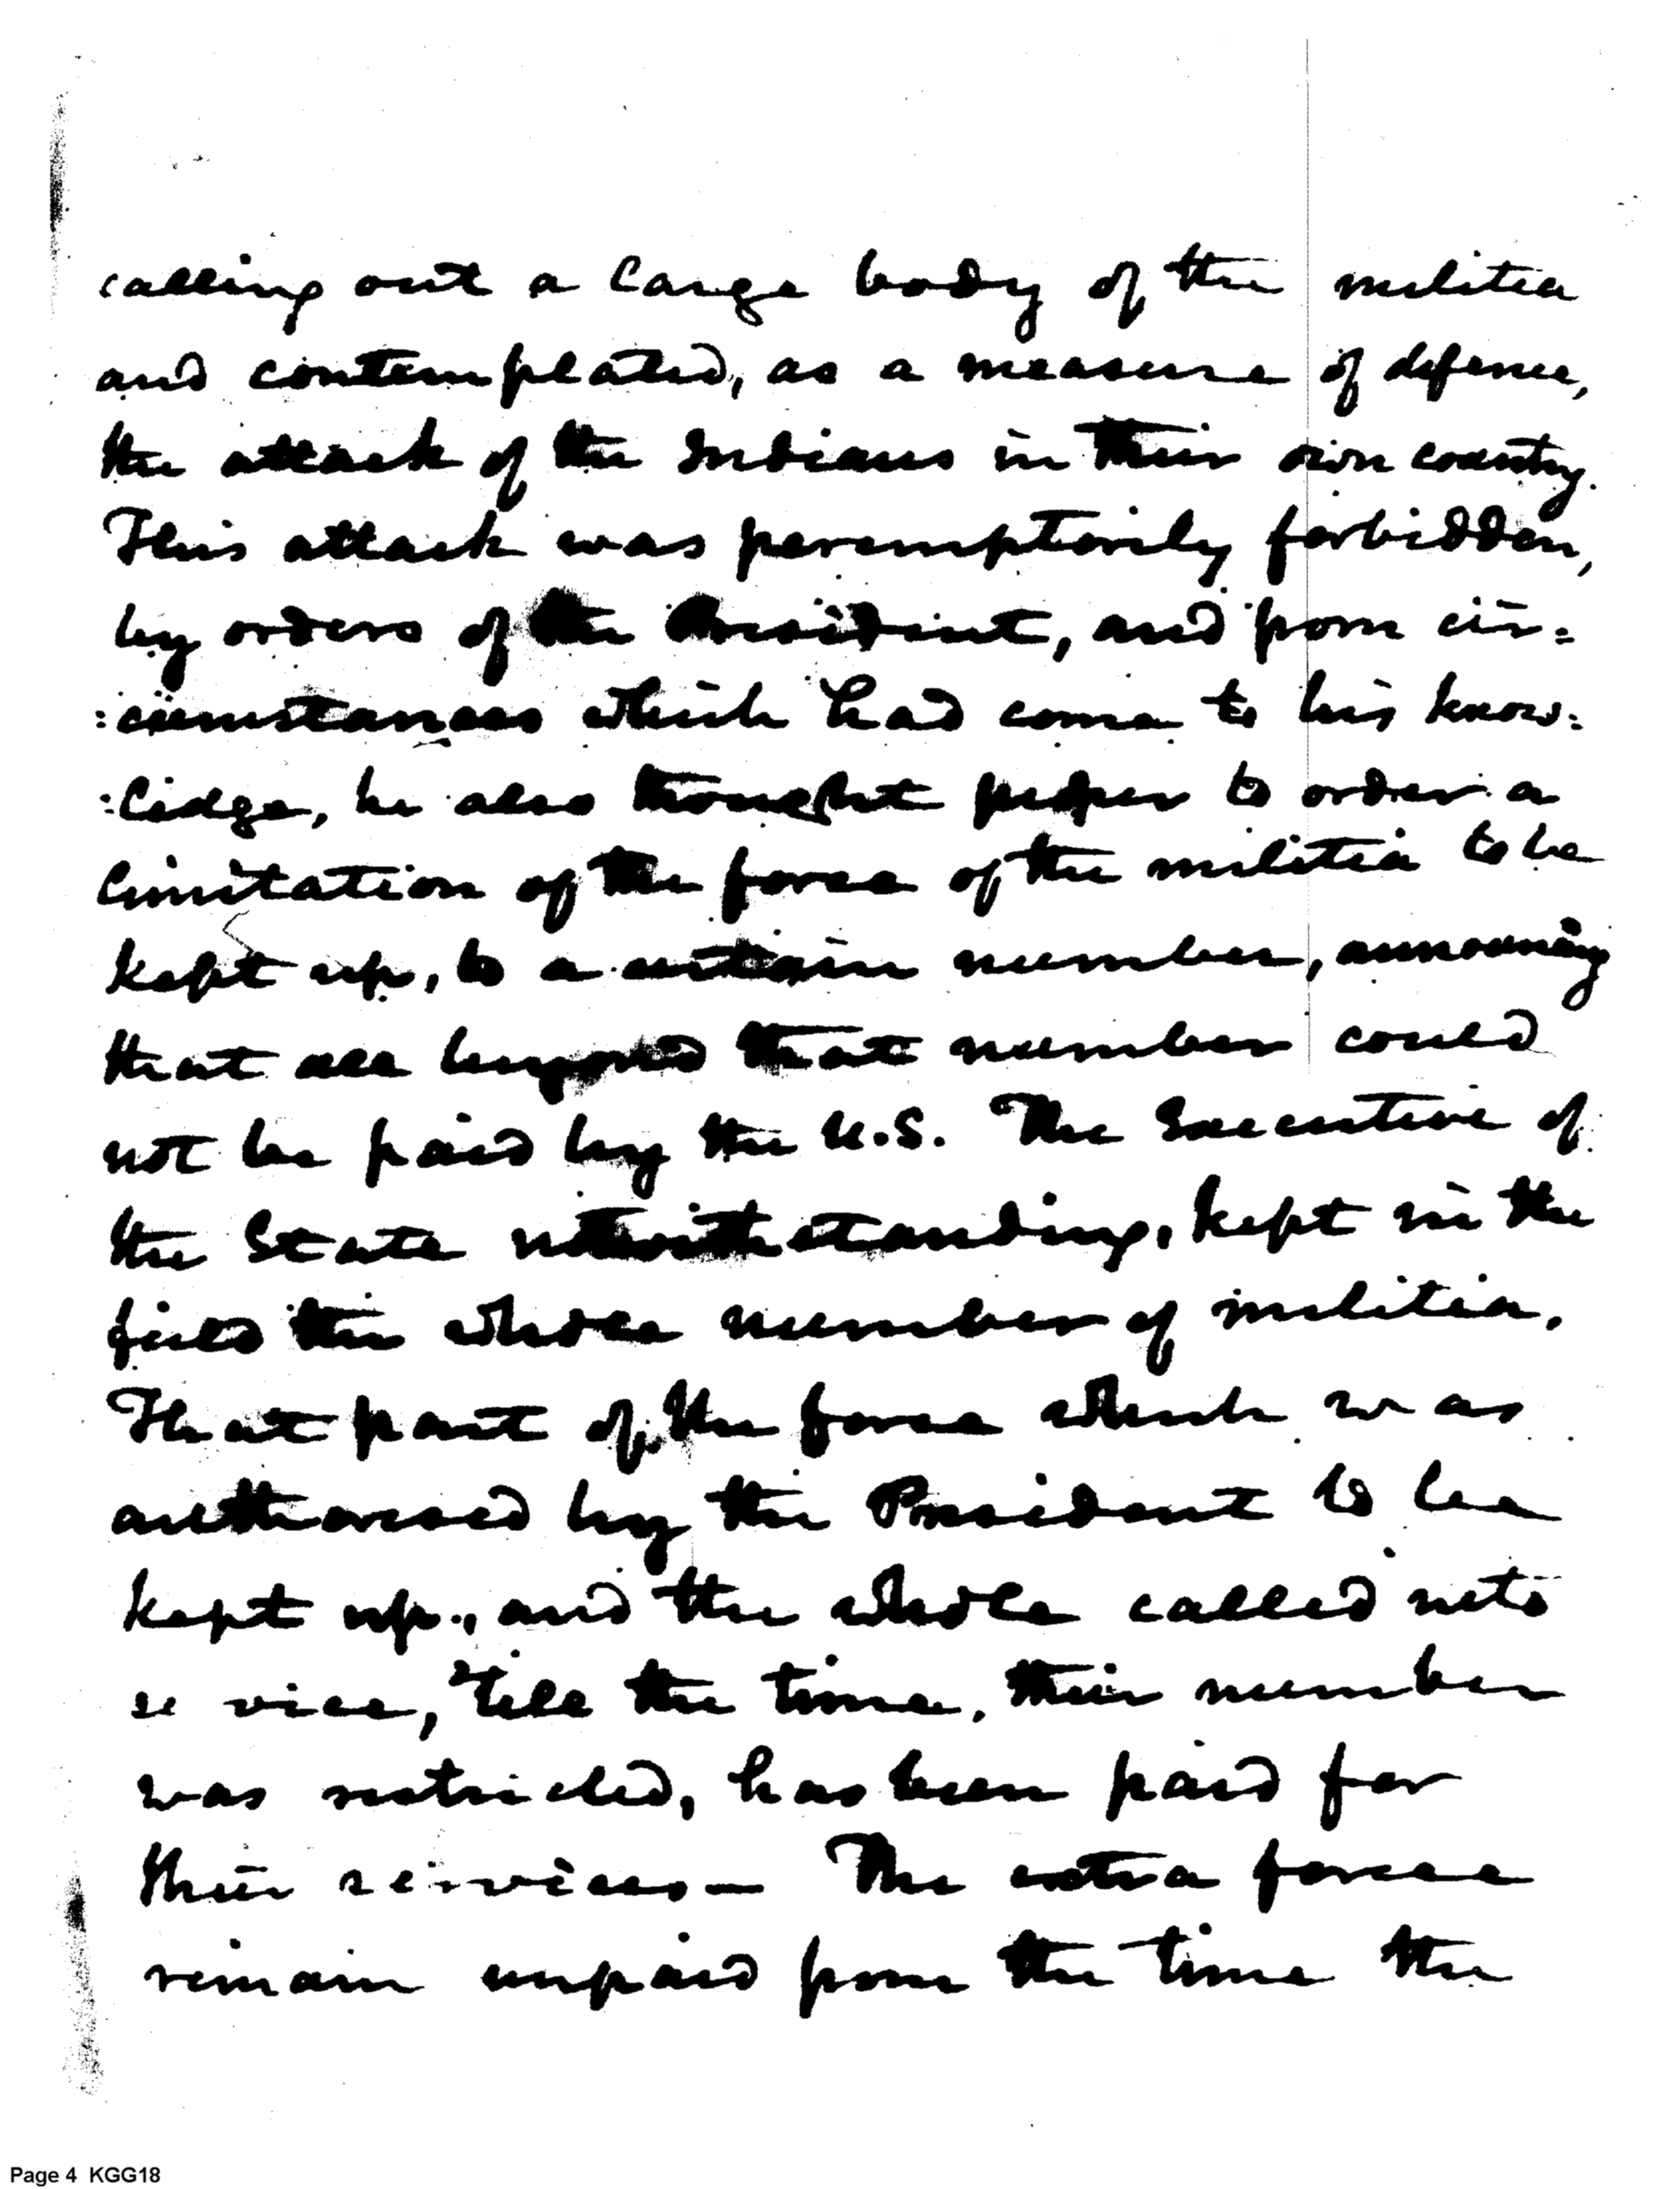 calling out a large body of the militia
and contemplated, as a measure of defence,
the attack of the Indians in their own country.
This attack was peremptorily forbidden,
by orders of the President, and from cir=
:cumstances which had come to his know:
:ledge, he also thought proper to order a
limitation of the force of the militia to be
kept up, to a certain number, announcing
that all beyond that number could
not be paid by the U.S. The Executive of
the State notwithstanding, kept in the
field the whole number of militia.
That part of the force which was
authorised by the President to be
kept up, and the whole called into
service, 'till the time, their number
was restricted, has been paid for
their services— The extra forces
remain unpaid from the time the
Page 4 KGG18